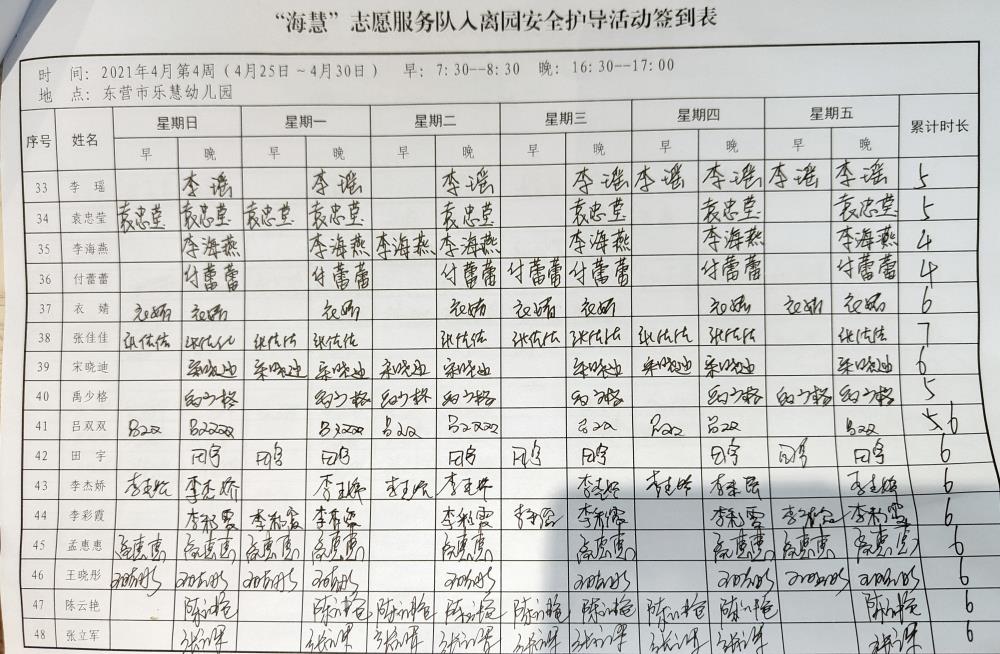 “海慧”志愿服务队入离园安全护导活动签到表
时 间：2021年4月第4周（4月25日～4月30日） 早：7:30--8:30 晚：16:30--17:00
地 点：东营市乐慧幼儿园
序号 姓名 星期日 星期一 星期二 星期三 星期四 星期五 累计时长
早 晚 早 晚 早 晚 早 晚 早 晚 早 晚
33 李 瑶 李瑶 李瑶 李瑶 李瑶 李瑶 李瑶 李瑶 李瑶 5
34 袁忠莹 袁忠莹 袁忠莹 袁忠莹 袁忠莹 袁忠莹 袁忠莹 袁忠莹 袁忠莹 5
35 李海燕 李海燕 李海燕 李海燕 李海燕 李海燕 李海燕 李海燕 4
36 付蕾蕾 付蕾蕾 付蕾蕾 付蕾蕾 付蕾蕾 付蕾蕾 付蕾蕾 付蕾蕾 4
37 衣 婧 衣婧 衣婧 衣婧 衣婧 衣婧 衣婧 衣婧 衣婧 衣婧 6
38 张佳佳 张佳佳 张佳佳 张佳佳 张佳佳 张佳佳 张佳佳 张佳佳 张佳佳 张佳佳 7
39 宋晓迪 宋晓迪 宋晓迪 宋晓迪 宋晓迪 宋晓迪 宋晓迪 宋晓迪 宋晓迪 6
40 禹少格 禹少格 禹少格 禹少格 禹少格 禹少格 禹少格 禹少格 禹少格 5
41 吕双双 吕双双 吕双双 吕双双 吕双双 吕双双 吕双双 吕双双 吕双双 吕双双 6
42 田 宇 田宇 田宇 田宇 田宇 田宇 田宇 田宇 田宇 田宇 6
43 李杰娇 李杰娇 李杰娇 李杰娇 李杰娇 李杰娇 李杰娇 李杰娇 李杰娇 李杰娇 6
44 李彩霞 李彩霞 李彩霞 李彩霞 李彩霞 李彩霞 李彩霞 李彩霞 李彩霞 李彩霞 6
45 孟惠惠 孟惠惠 孟惠惠 孟惠惠 孟惠惠 孟惠惠 孟惠惠 孟惠惠 孟惠惠 孟惠惠 6
46 王晓彤 王晓彤 王晓彤 王晓彤 王晓彤 王晓彤 王晓彤 王晓彤 王晓彤 王晓彤 6
47 陈云艳 陈云艳 陈云艳 陈云艳 陈云艳 陈云艳 陈云艳 陈云艳 陈云艳 陈云艳 6
48 张立军 张立军 张立军 张立军 张立军 张立军 张立军 张立军 张立军 张立军 6